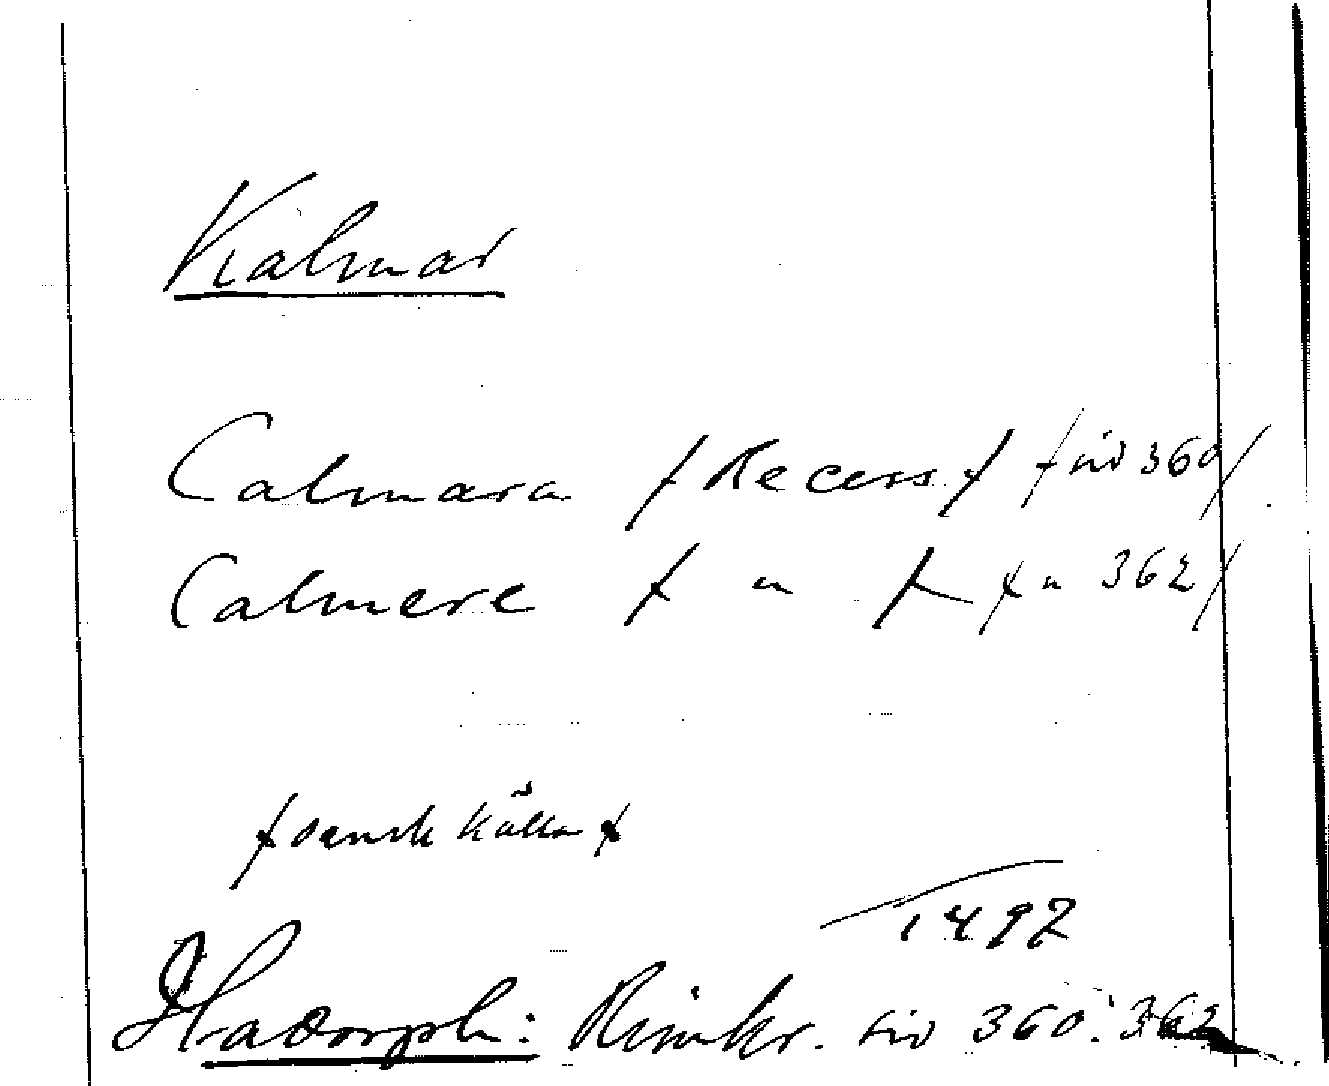 Kalmar
Calmara / Recess. / / sid 360 /
Calmere / " / / " 362 /
/ dansk källa /
1492
Hadorph: Rimkr. sid 360. 362